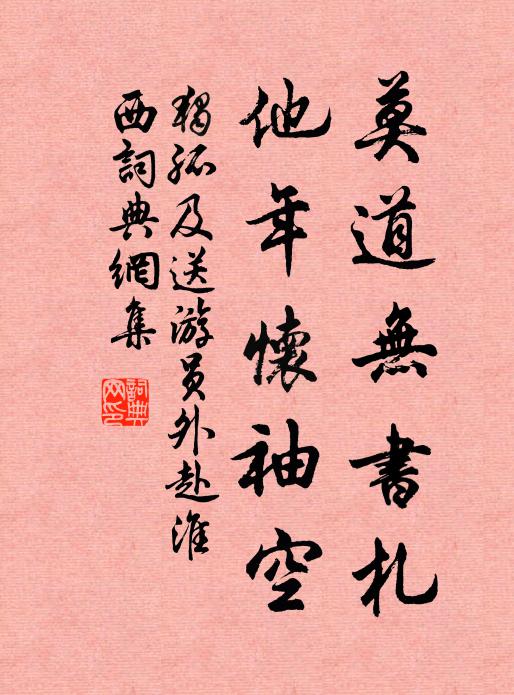 莫道無書札
他年懷袖空
獨孤及送游員外赴淮
西詞典網集
詞典
网印